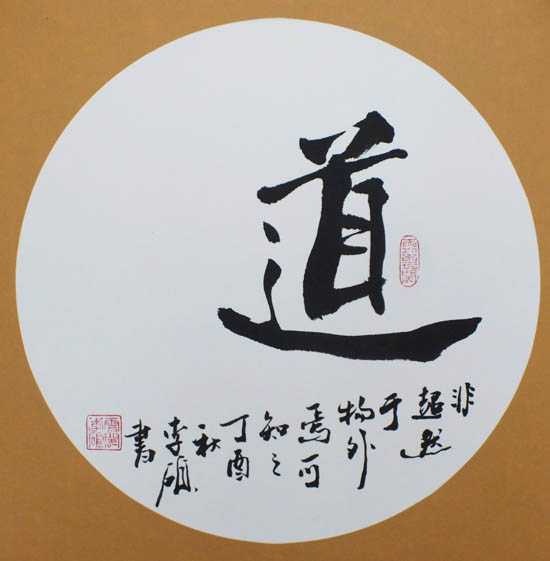 道
非
超然
于
物外
焉可
知之
丁酉
秋
李硕
書